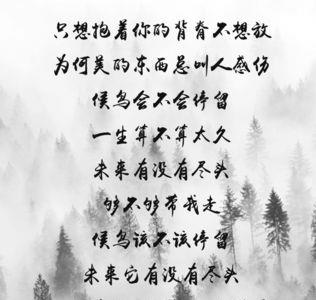 只想抱着你的背脊不想放
为何美的东西总叫人感伤
候鸟会不会停留
一生算不算太久
未来有没有尽头
够不够带我走
候鸟该不该停留
未来它有没有尽头